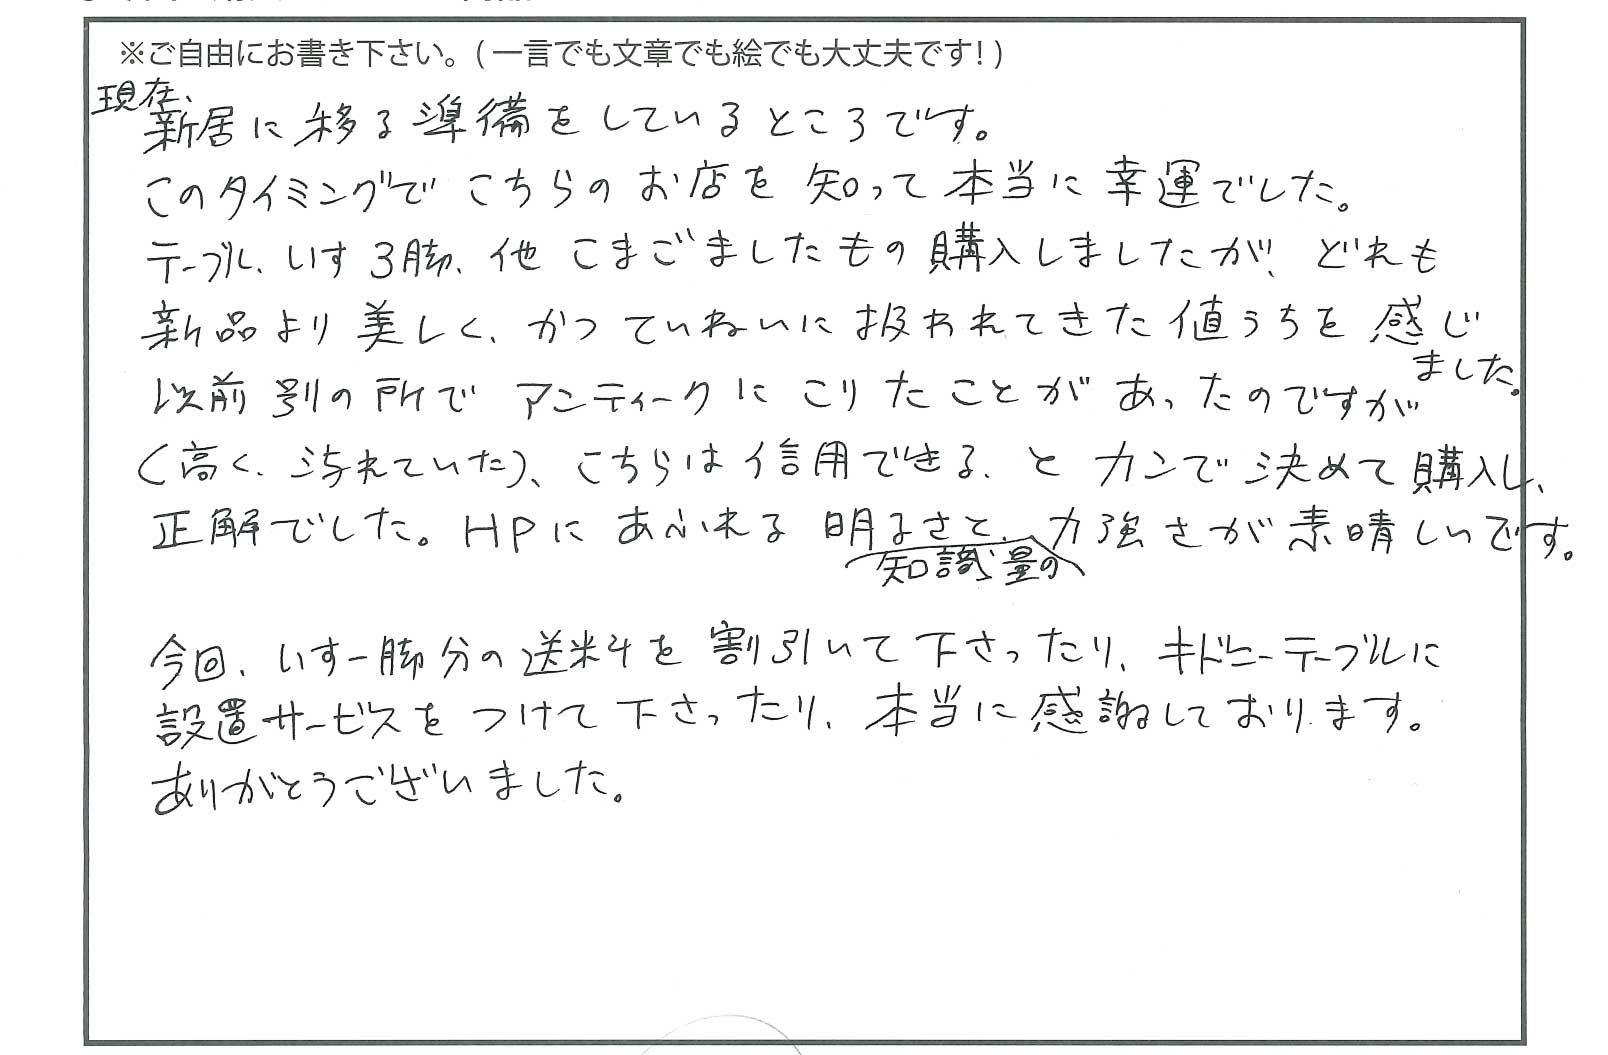 ※ご自由にお書き下さい。(一言でも文章でも絵でも大丈夫です!)
現在、
新居に移る準備をしているところです。
このタイミングでこちらのお店を知って本当に幸運でした。
テーブル、いす3脚、他こまごましたもの購入しましたが、どれも
新品より美しく、かつていねいに扱われてきた値うちを感じ
ました。
以前別の所でアンティークにこりたことがあったのですが
(高く、汚れていた)、こちらは信用できる、とカンで決めて購入し、
正解でした。HPにあふれる明るさと、力強さが素晴しいです。
知識量の
今回、いす一脚分の送料を割引いて下さったり、キドニーテーブルに
設置サービスをつけて下さったり、本当に感謝しております。
ありがとうございました。